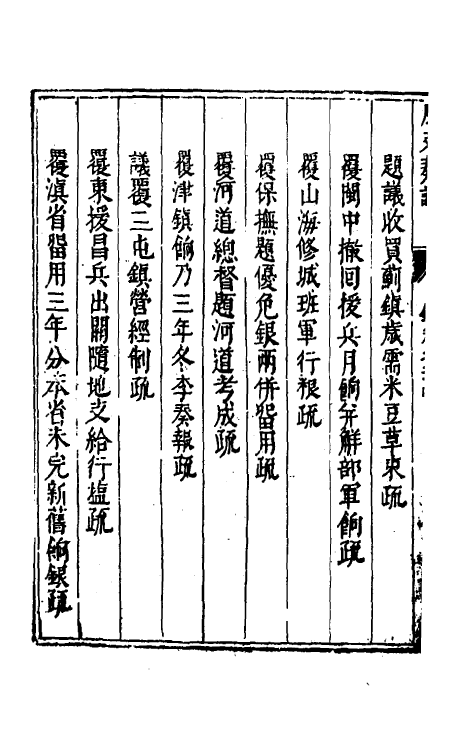 題議收買薊鎮歲需米豆草束疏
覆閩中撤回援兵月餉弁解部軍餉疏
覆山海修城班軍行粮疏
覆保撫題優免銀兩併畱用疏
覆河道總督題河道考成疏
覆津鎮餉乃三年冬季奏報疏
議覆三屯鎮營經制疏
覆東援昌兵出關隨地支給行塩疏
覆滇省畱用三年分本省未完新舊餉銀疏